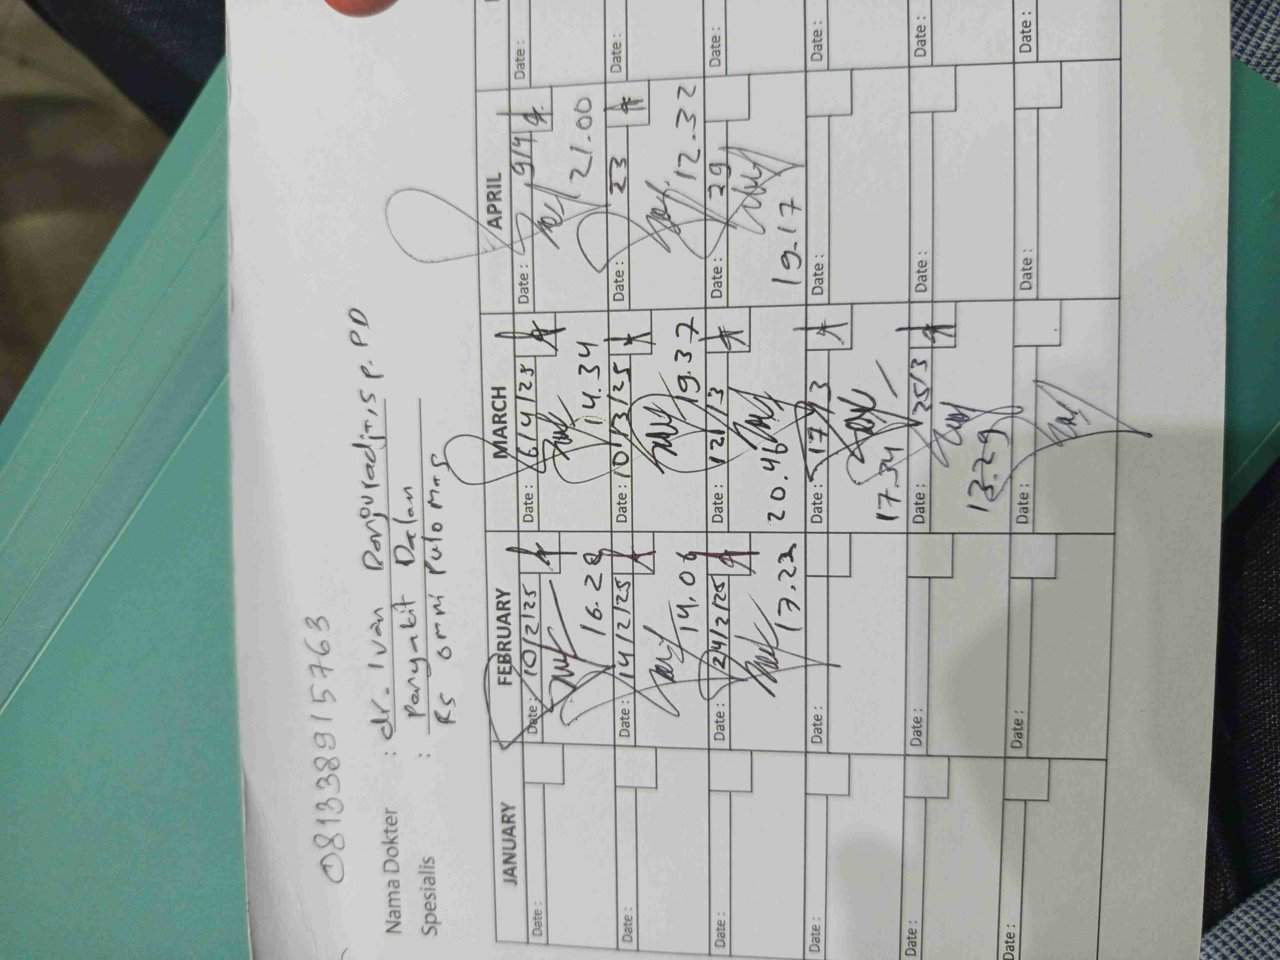 081338915763
Nama Dokter : dr. Ivan Panguradjt, sp. PD
Spesialis : Penyakit Dalam
RS omni Pulo mas
JANUARY FEBRUARY MARCH APRIL
Date : Date : 10/2/25 Date : 6/4/25 Date : 9/4 Date :
16.28 14.34 21.00
Date : Date : 14/2/25 Date : 10/3/25 Date : 23 Date :
14.06 19.37 12.32
Date : Date : 24/2/25 Date : 12/3 Date : 29 Date :
17.22 20.46 19.17
Date : Date : Date : 17/3 Date : Date :
17.34
Date : Date : Date : 25/3 Date : Date :
13.29
Date : Date : Date : Date : Date :